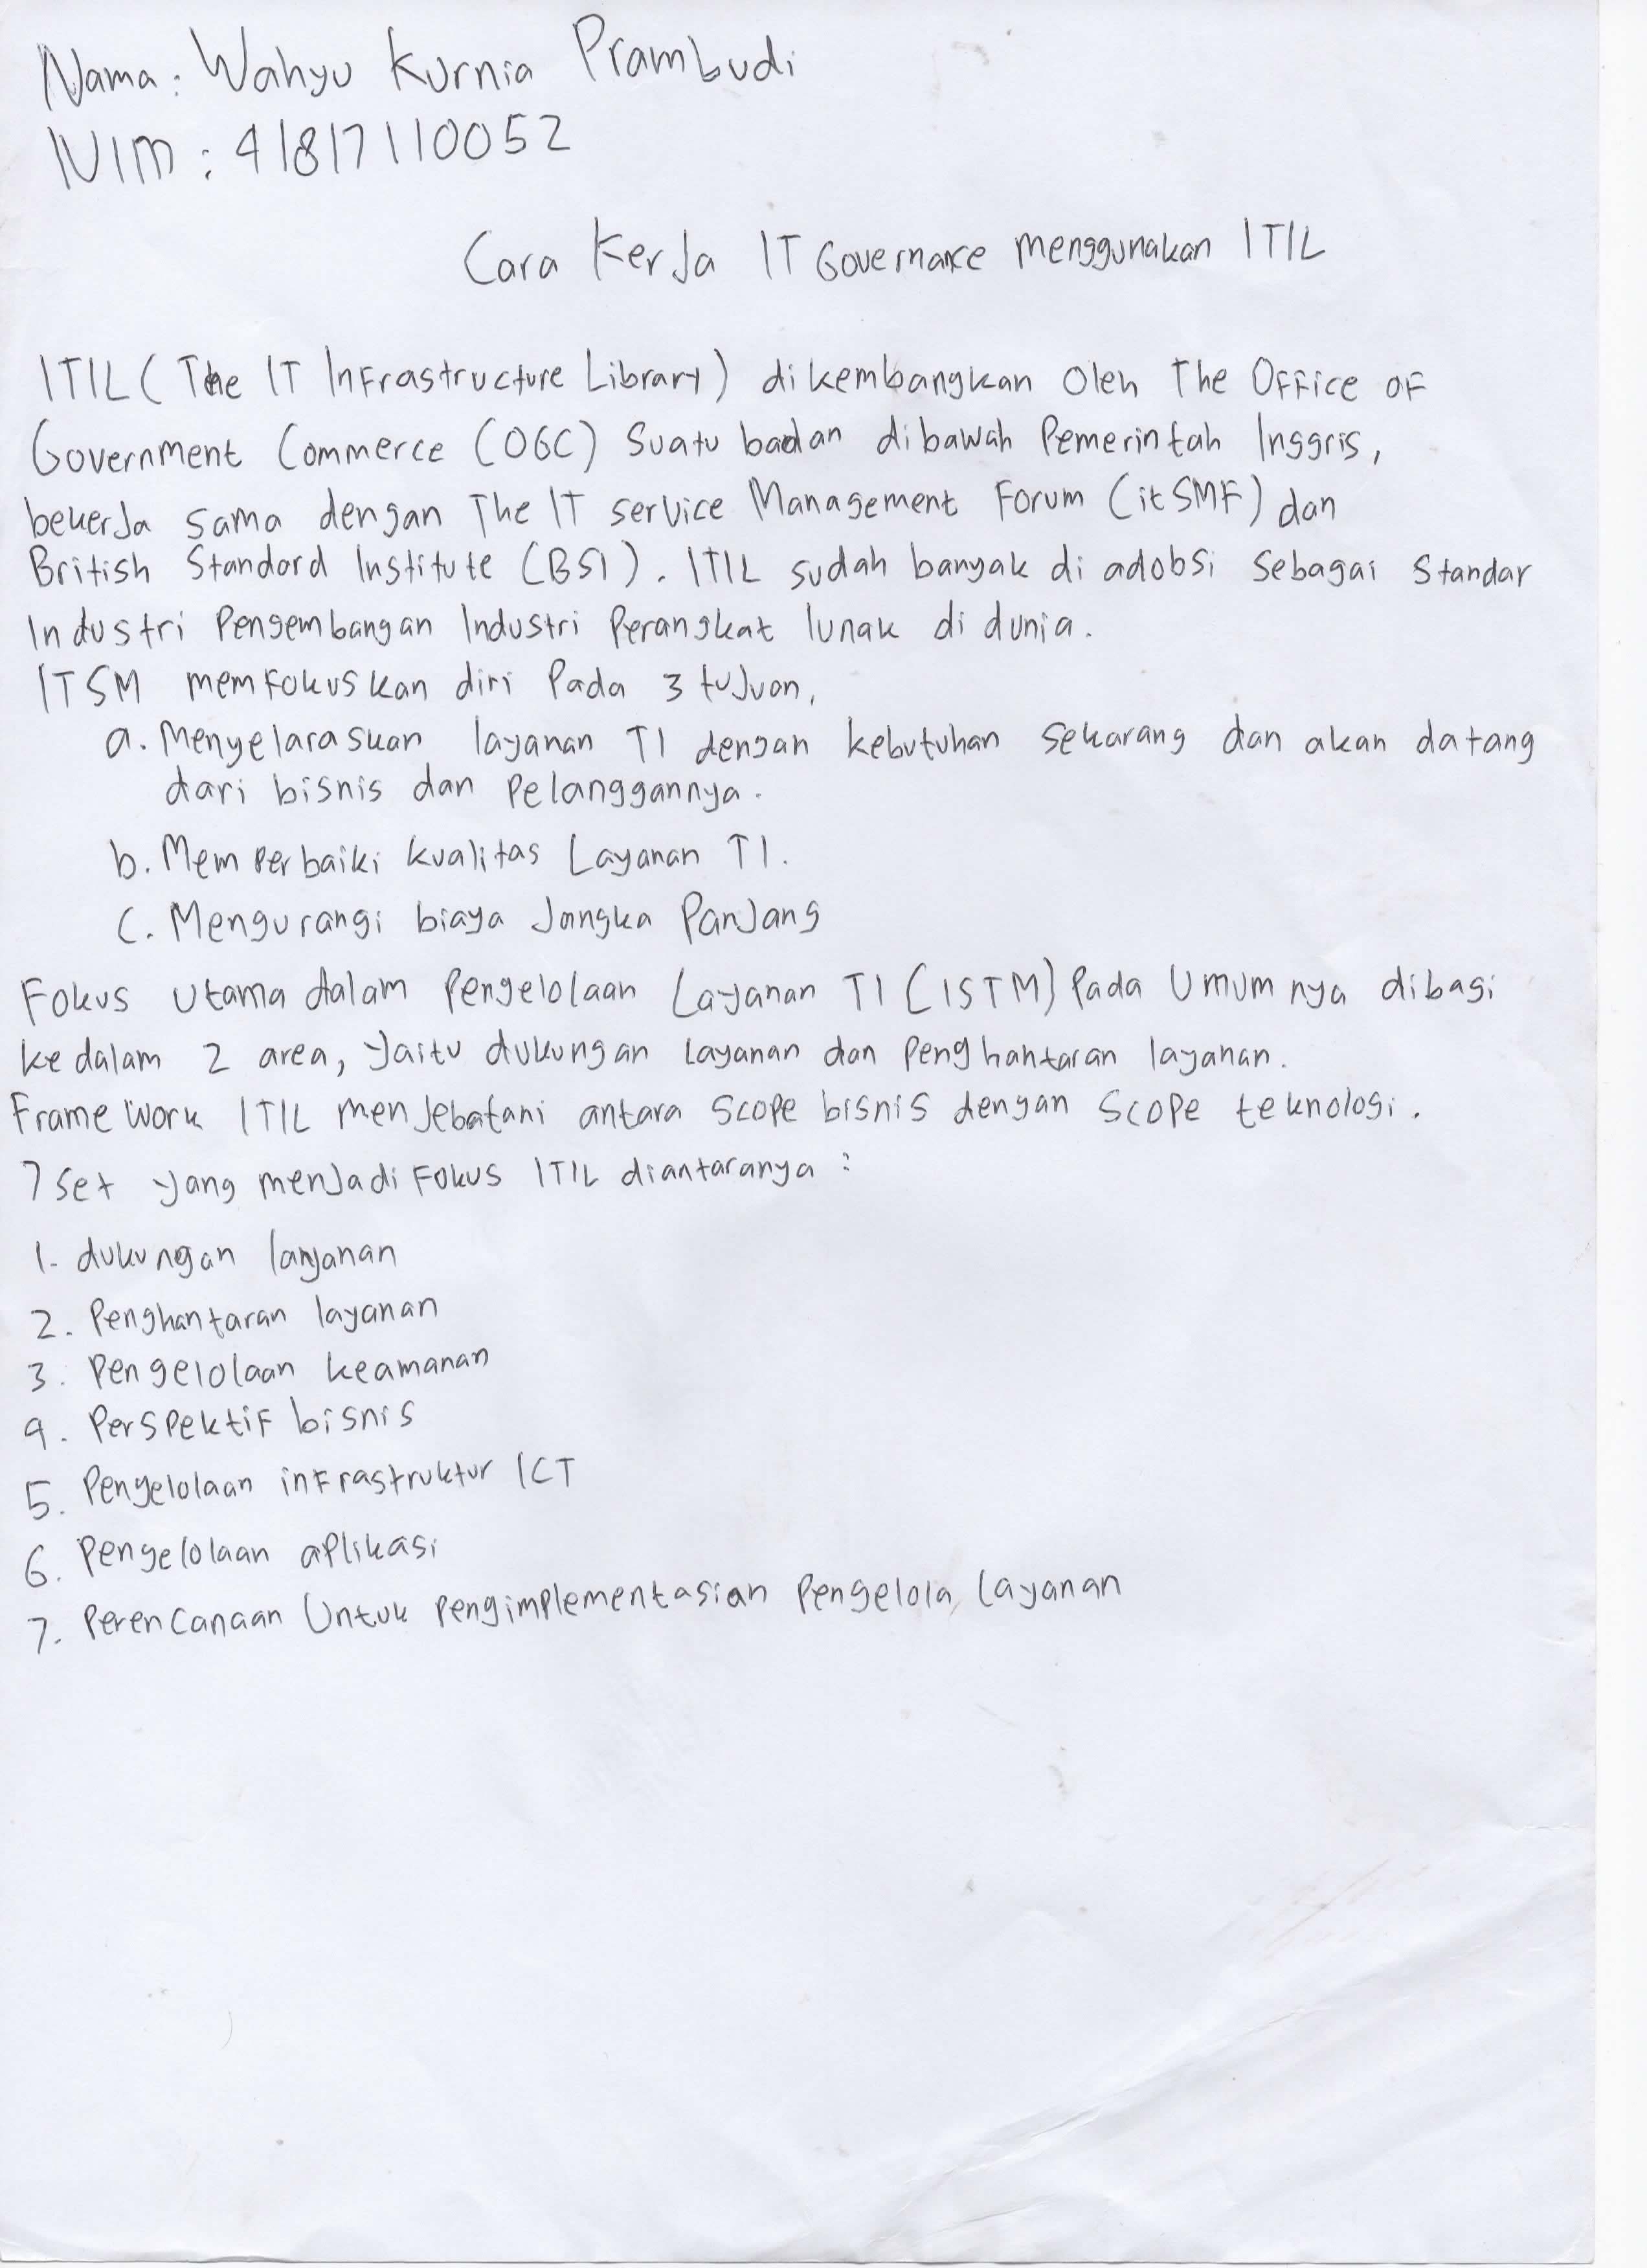 Nama : Wahyu Kurnia Prambudi
NIM : 41817110052
Cara Kerja IT Governance menggunakan ITIL
ITIL (The IT Infrastructure Library) dikembangkan Oleh The Office of
Government Commerce (OGC) Suatu badan dibawah Pemerintah Inggris,
bekerja sama dengan The IT service Management Forum (itSMF) dan
British Standard Institute (BSI). ITIL sudah banyak di adobsi sebagai Standar
Industri Pengembangan Industri Perangkat lunak di dunia.
ITSM memfokuskan diri Pada 3 tujuan,
a. Menyelaraskan layanan TI dengan kebutuhan sekarang dan akan datang
dari bisnis dan Pelanggannya.
b. Memperbaiki kualitas Layanan TI.
C. Mengurangi biaya Jangka Panjang
Fokus Utama dalam Pengelolaan Layanan TI (ISTM) Pada Umumnya dibagi
kedalam 2 area, yaitu dukungan layanan dan Penghantaran layanan.
Frame Work ITIL menjebatani antara scope bisnis dengan scope teknologi.
7 Set yang menjadi Fokus ITIL diantaranya :
1. dukungan layanan
2. Penghantaran layanan
3. Pengelolaan keamanan
4. Perspektif bisnis
5. Pengelolaan infrastruktur ICT
6. Pengelolaan aplikasi
7. Perencanaan Untuk Pengimplementasian Pengelola Layanan